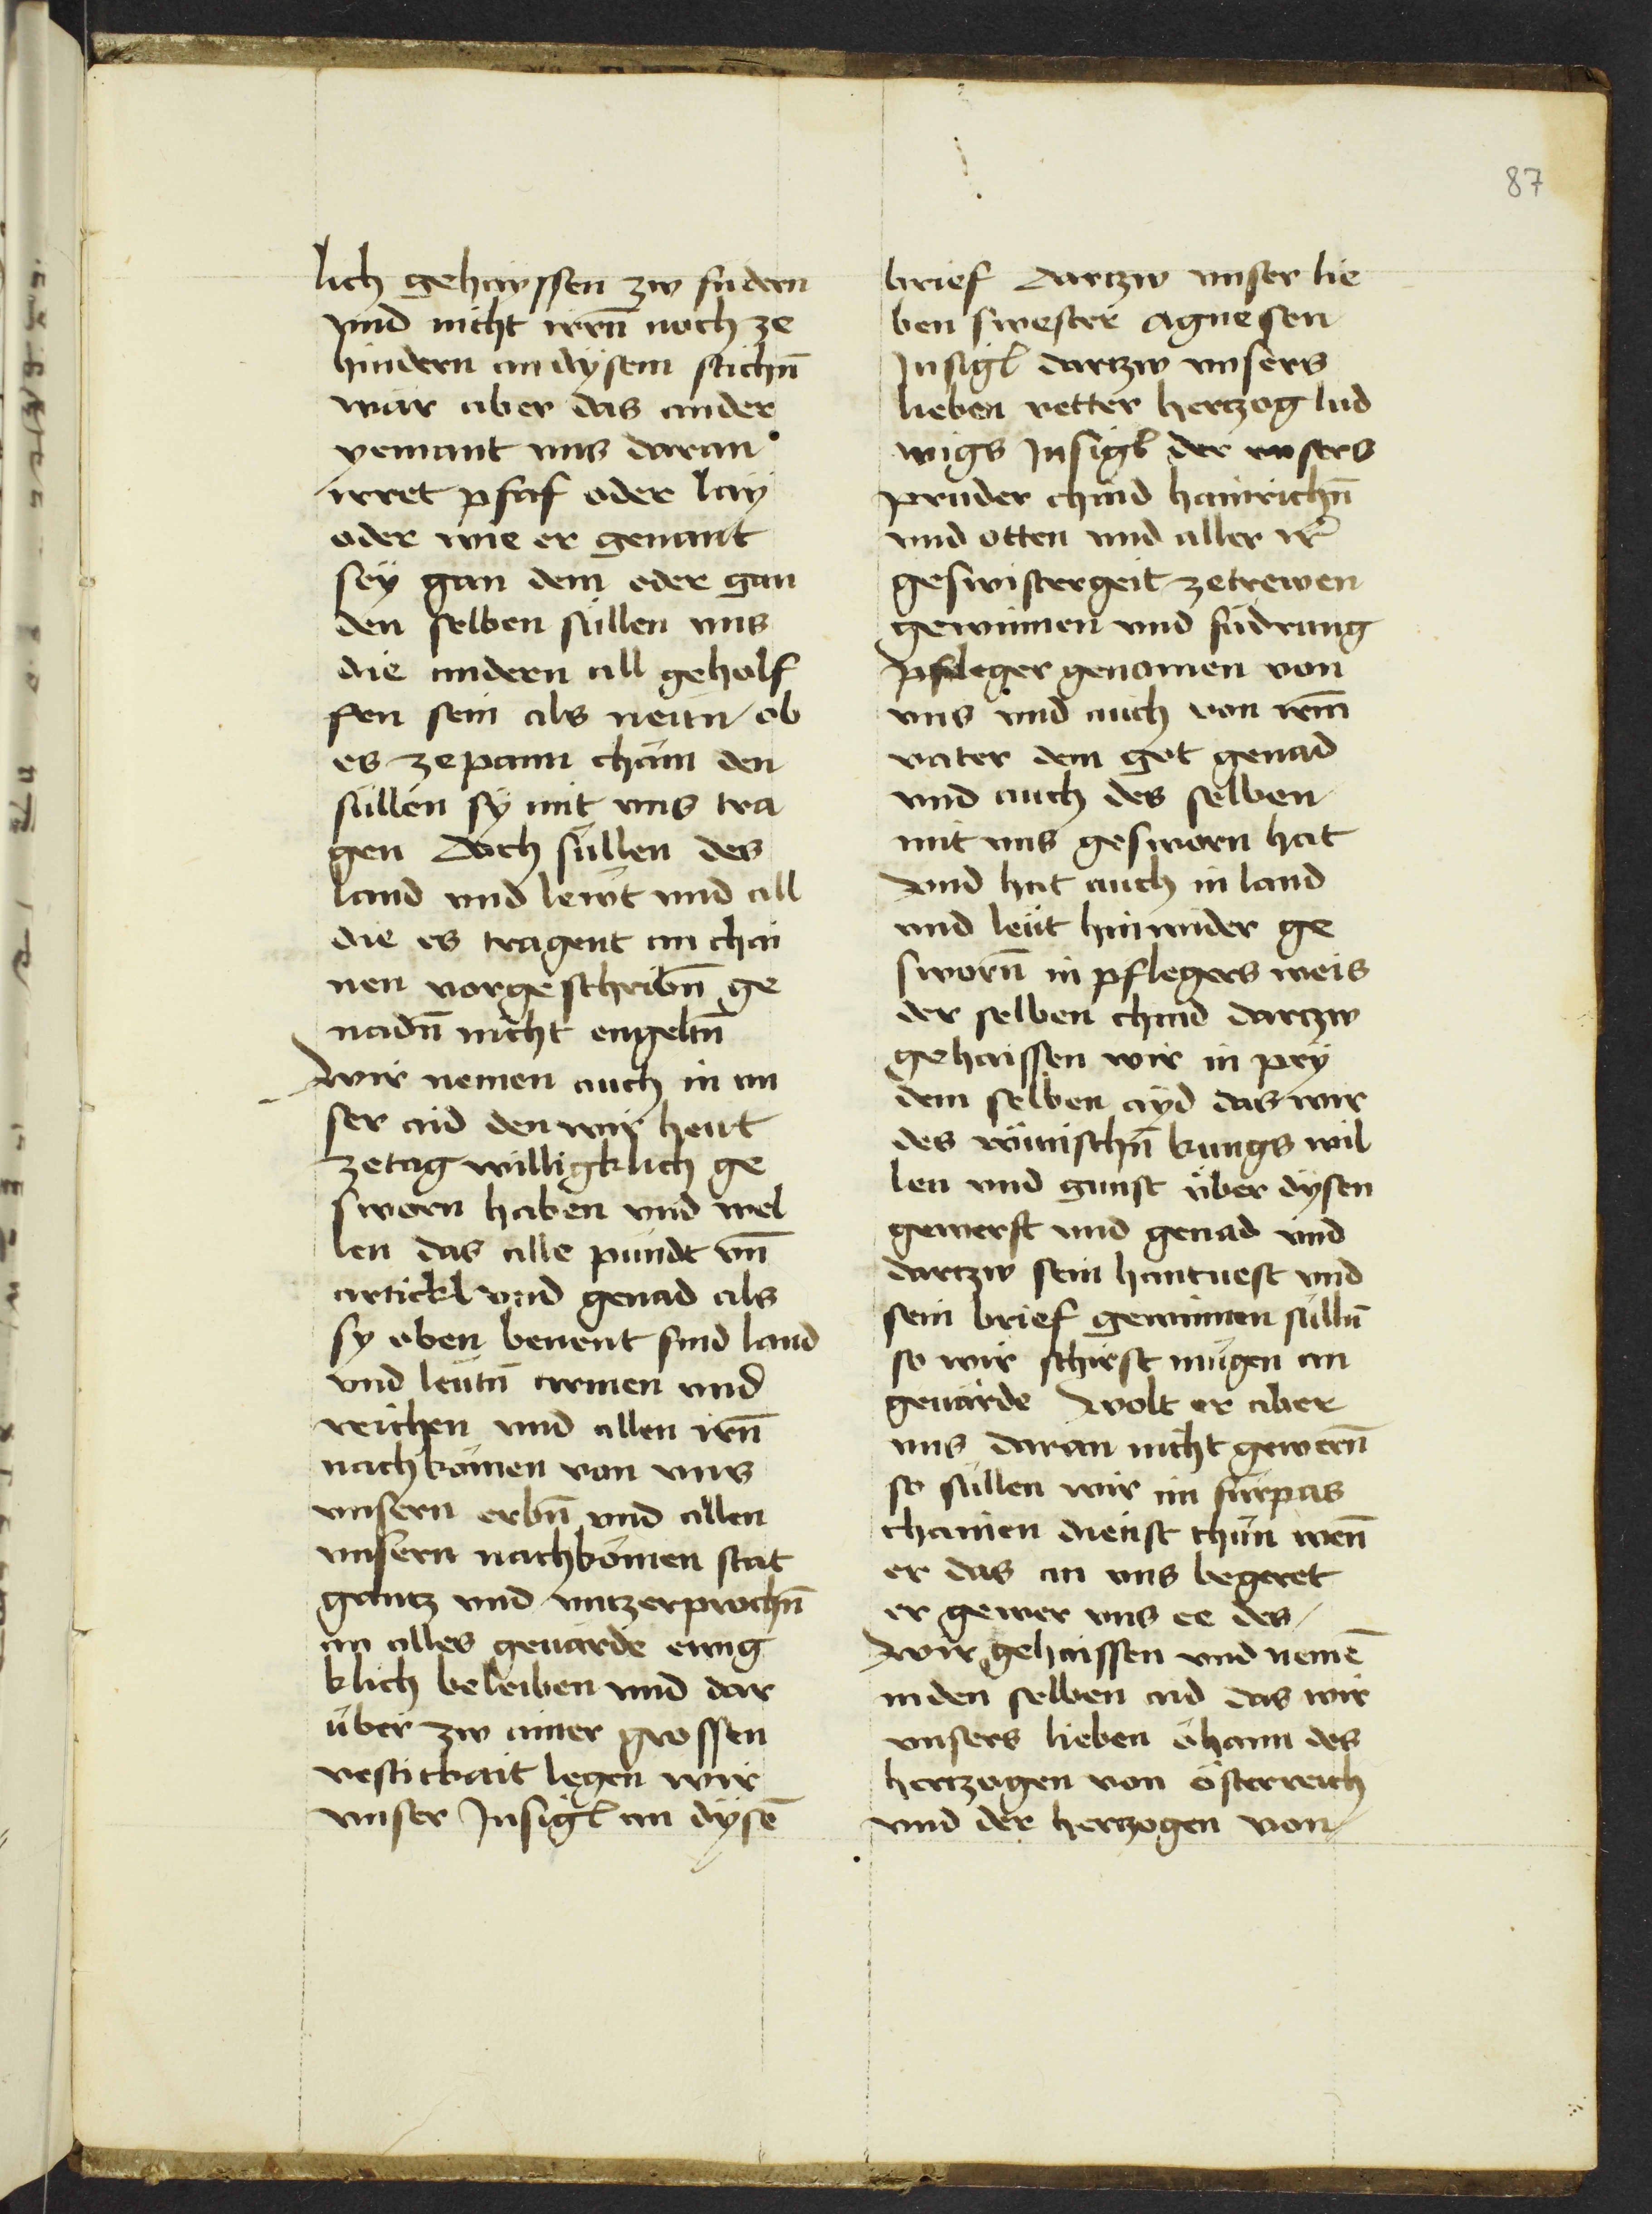 87
lich gehayssen zw fudern
vnd nicht irrn̄ noch ze
hindern an dysem sachn̄
wär aber das ander
yemant vns daran
irret pfaf oder lay
oder wie er genant
sey gan dem oder gan
den selben sullen vns
die andern all geholf
fen sein als verrn ob
es ze pann cham den
sullen sy mit vns tra
gen doch sullen des
land vnd lewt vnd all
die es tragent an chai
nen vorgeschribn̄ ge
nadn̄ nicht engeltn̄
wir nemen auch in vn
ser aid den wir heut
zetag willigklich ge
sworn haben vnd wel
len das alle pündt vn̄
artickl vnd genad als
sy oben benent sind land
vnd leutn̄ armen vnd
reichen vnd allen irn̄
nachkömen von vns
vnsern erbn̄ vnd allen
vnsern nachkömen stat
gantz vnd vntzerprochn̄
an alles geuärde ewig
klich beleiben vnd dar
über zw ainer grossen
vestitkait legen wir
vnser Insigl an dysē
brief dartzw vnser lie
ben swester Agnesen
Insigl dartzw vnsers
lieben vetter hertzog lud
wigs Insigl der vnsers
pruder chind hainrichn̄
vnd otten vnd aller ir
geswistergeit zetrewen
gewinnen vnd fudrung
pfleger genomen von
vns vnd auch von irm̄
vater dem got genad
vnd auch des selben
mit vns gesworn hat
vnd hat auch in land
vnd leut hinwider ge
sworn̄ in pflegers weis
der selben chind dartzw
gehaissen wir in pey
dem selben ayd das wir
des römischn̄ kungs wil
len vnd gunst über dysen
gewerft vnd genad vnd
dartzw sein hantuest vnd
sein brief gewinnen sülln̄
so wir schirst mügen an
geuärde wolt er aber
vns daran nicht gewern̄
so sullen wir im fürpas
chainen dienst thün wen̄
er das an vns begeret
er gewer vns ee des
wir gehaissen vnd nemē
in den selben aid das wir
vnsers lieben öhann des
hertzogen von österreich
vnd der hertzogen von